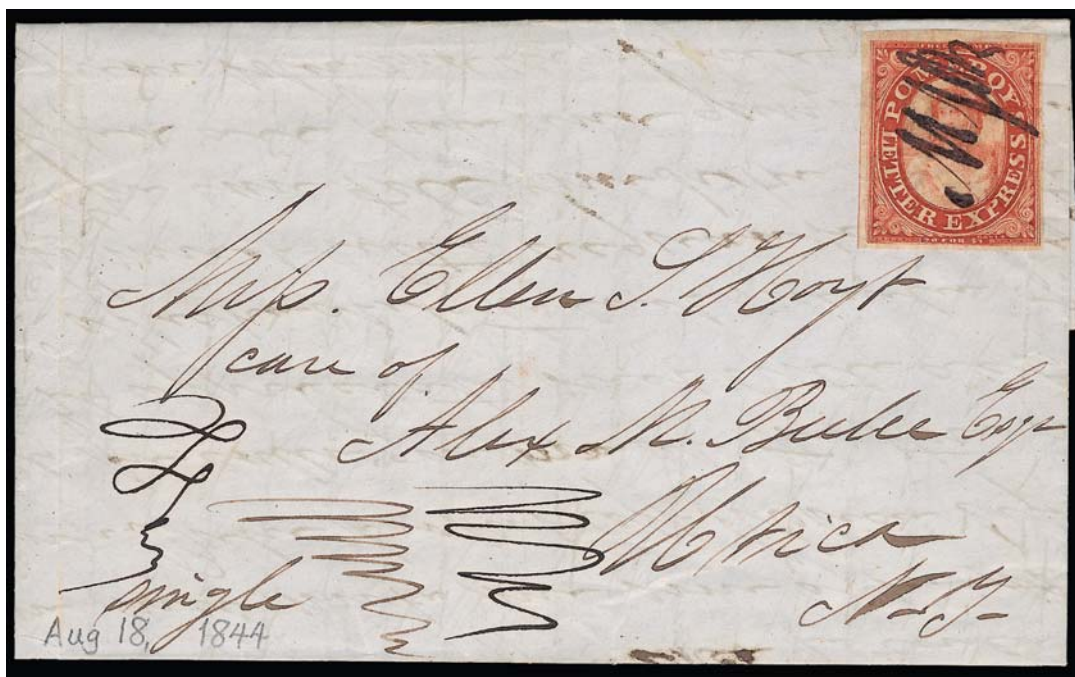 POMEROY
LETTER EXPRESS
20 FOR $1
Miss. Ellen S. Hoyt
care of
Alex M. Esqr
Utica
N.Y.
single
Aug 18, 1844